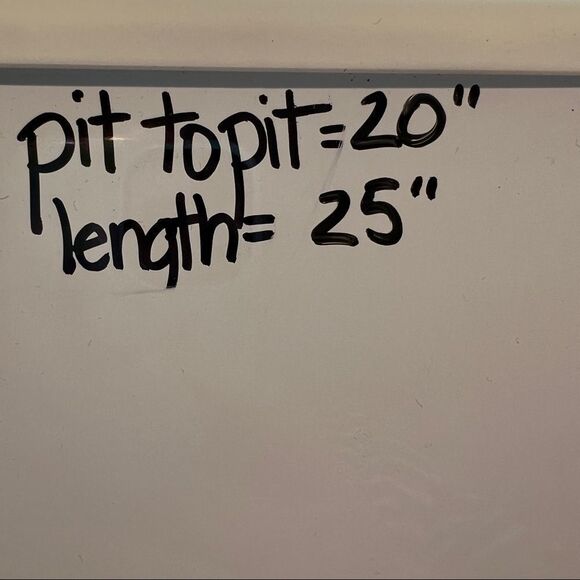 pit to pit = 20"
length = 25"